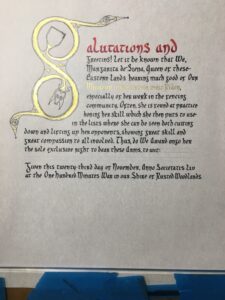 Salutations and
Greetings! Let it be known that We,
Margarita de Siena, Queen of these
Eastern Lands, hearing much good of Our
especially of her work in the fencing
community. Often, She is found at practice
honing her skill which she then puts to use
in the lists where she can be seen both cutting
down and lifting up her opponents, showing great skill and
great compassion to all involved. Thus, do We Award onto her
the sole exclusive right to bear these Arms, to wit:
Given this twenty-third day of November, Anno Societatis LIV
at the One Hundred Minutes War in our Shire of Rusted Woodlands